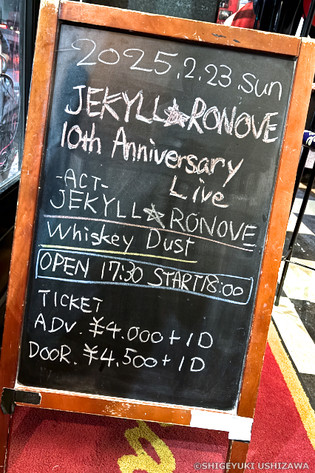 2025.2.23.Sun
JEKYLL☆RONOVE
10th Anniversary
Live
-ACT-
JEKYLL☆RONOVE
Whiskey Dust
OPEN 17:30 START18:00
TICKET
ADV. ¥4.000+1D
DOOR. ¥4,500+1D
©SHIGEYUKI USHIZAWA